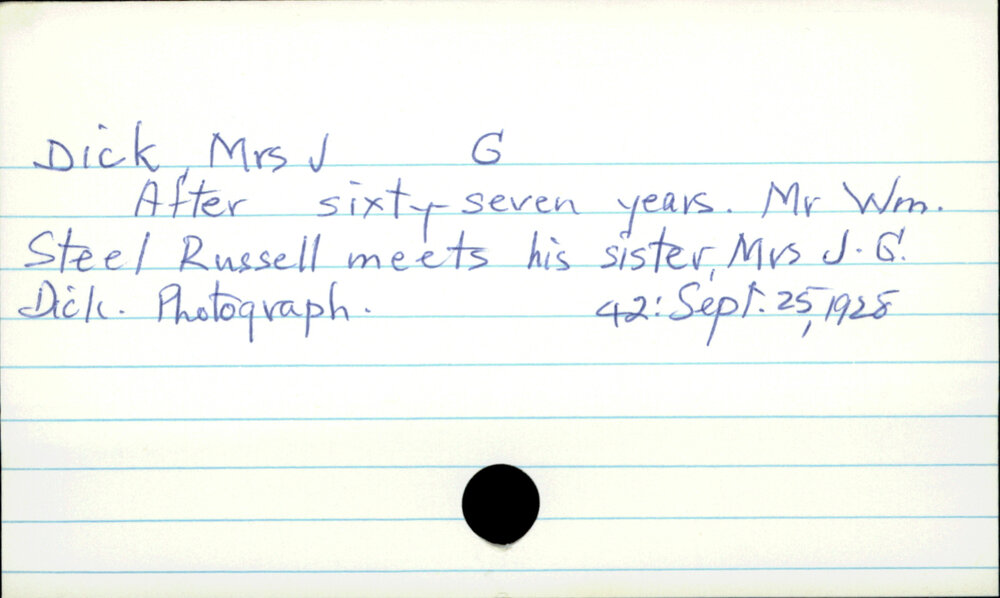 Dick, Mrs J G
After sixty-seven years. Mr Wm.
Steel Russell meets his sister, Mrs J. G.
Dick. Photograph. 42: Sept. 25, 1928